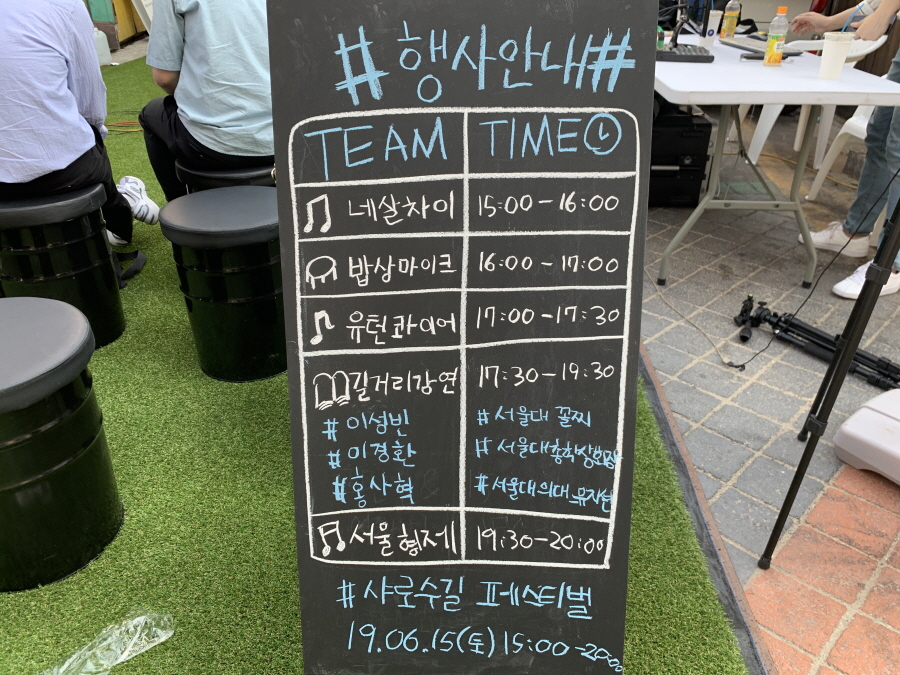 #행사안내#
TEAM TIME
네살차이 15:00-16:00
밥상마이크 16:00-17:00
유턴콰이어 17:00-17:30
길거리강연 17:30-19:30
#이성빈 #서울대 꼴찌
#이경환 #서울대총학생회장
#홍사혁 #서울대의대 뮤지션
서울형제 19:30-20:00
#샤로수길 페스티벌
19.06.15(토) 15:00-20:00